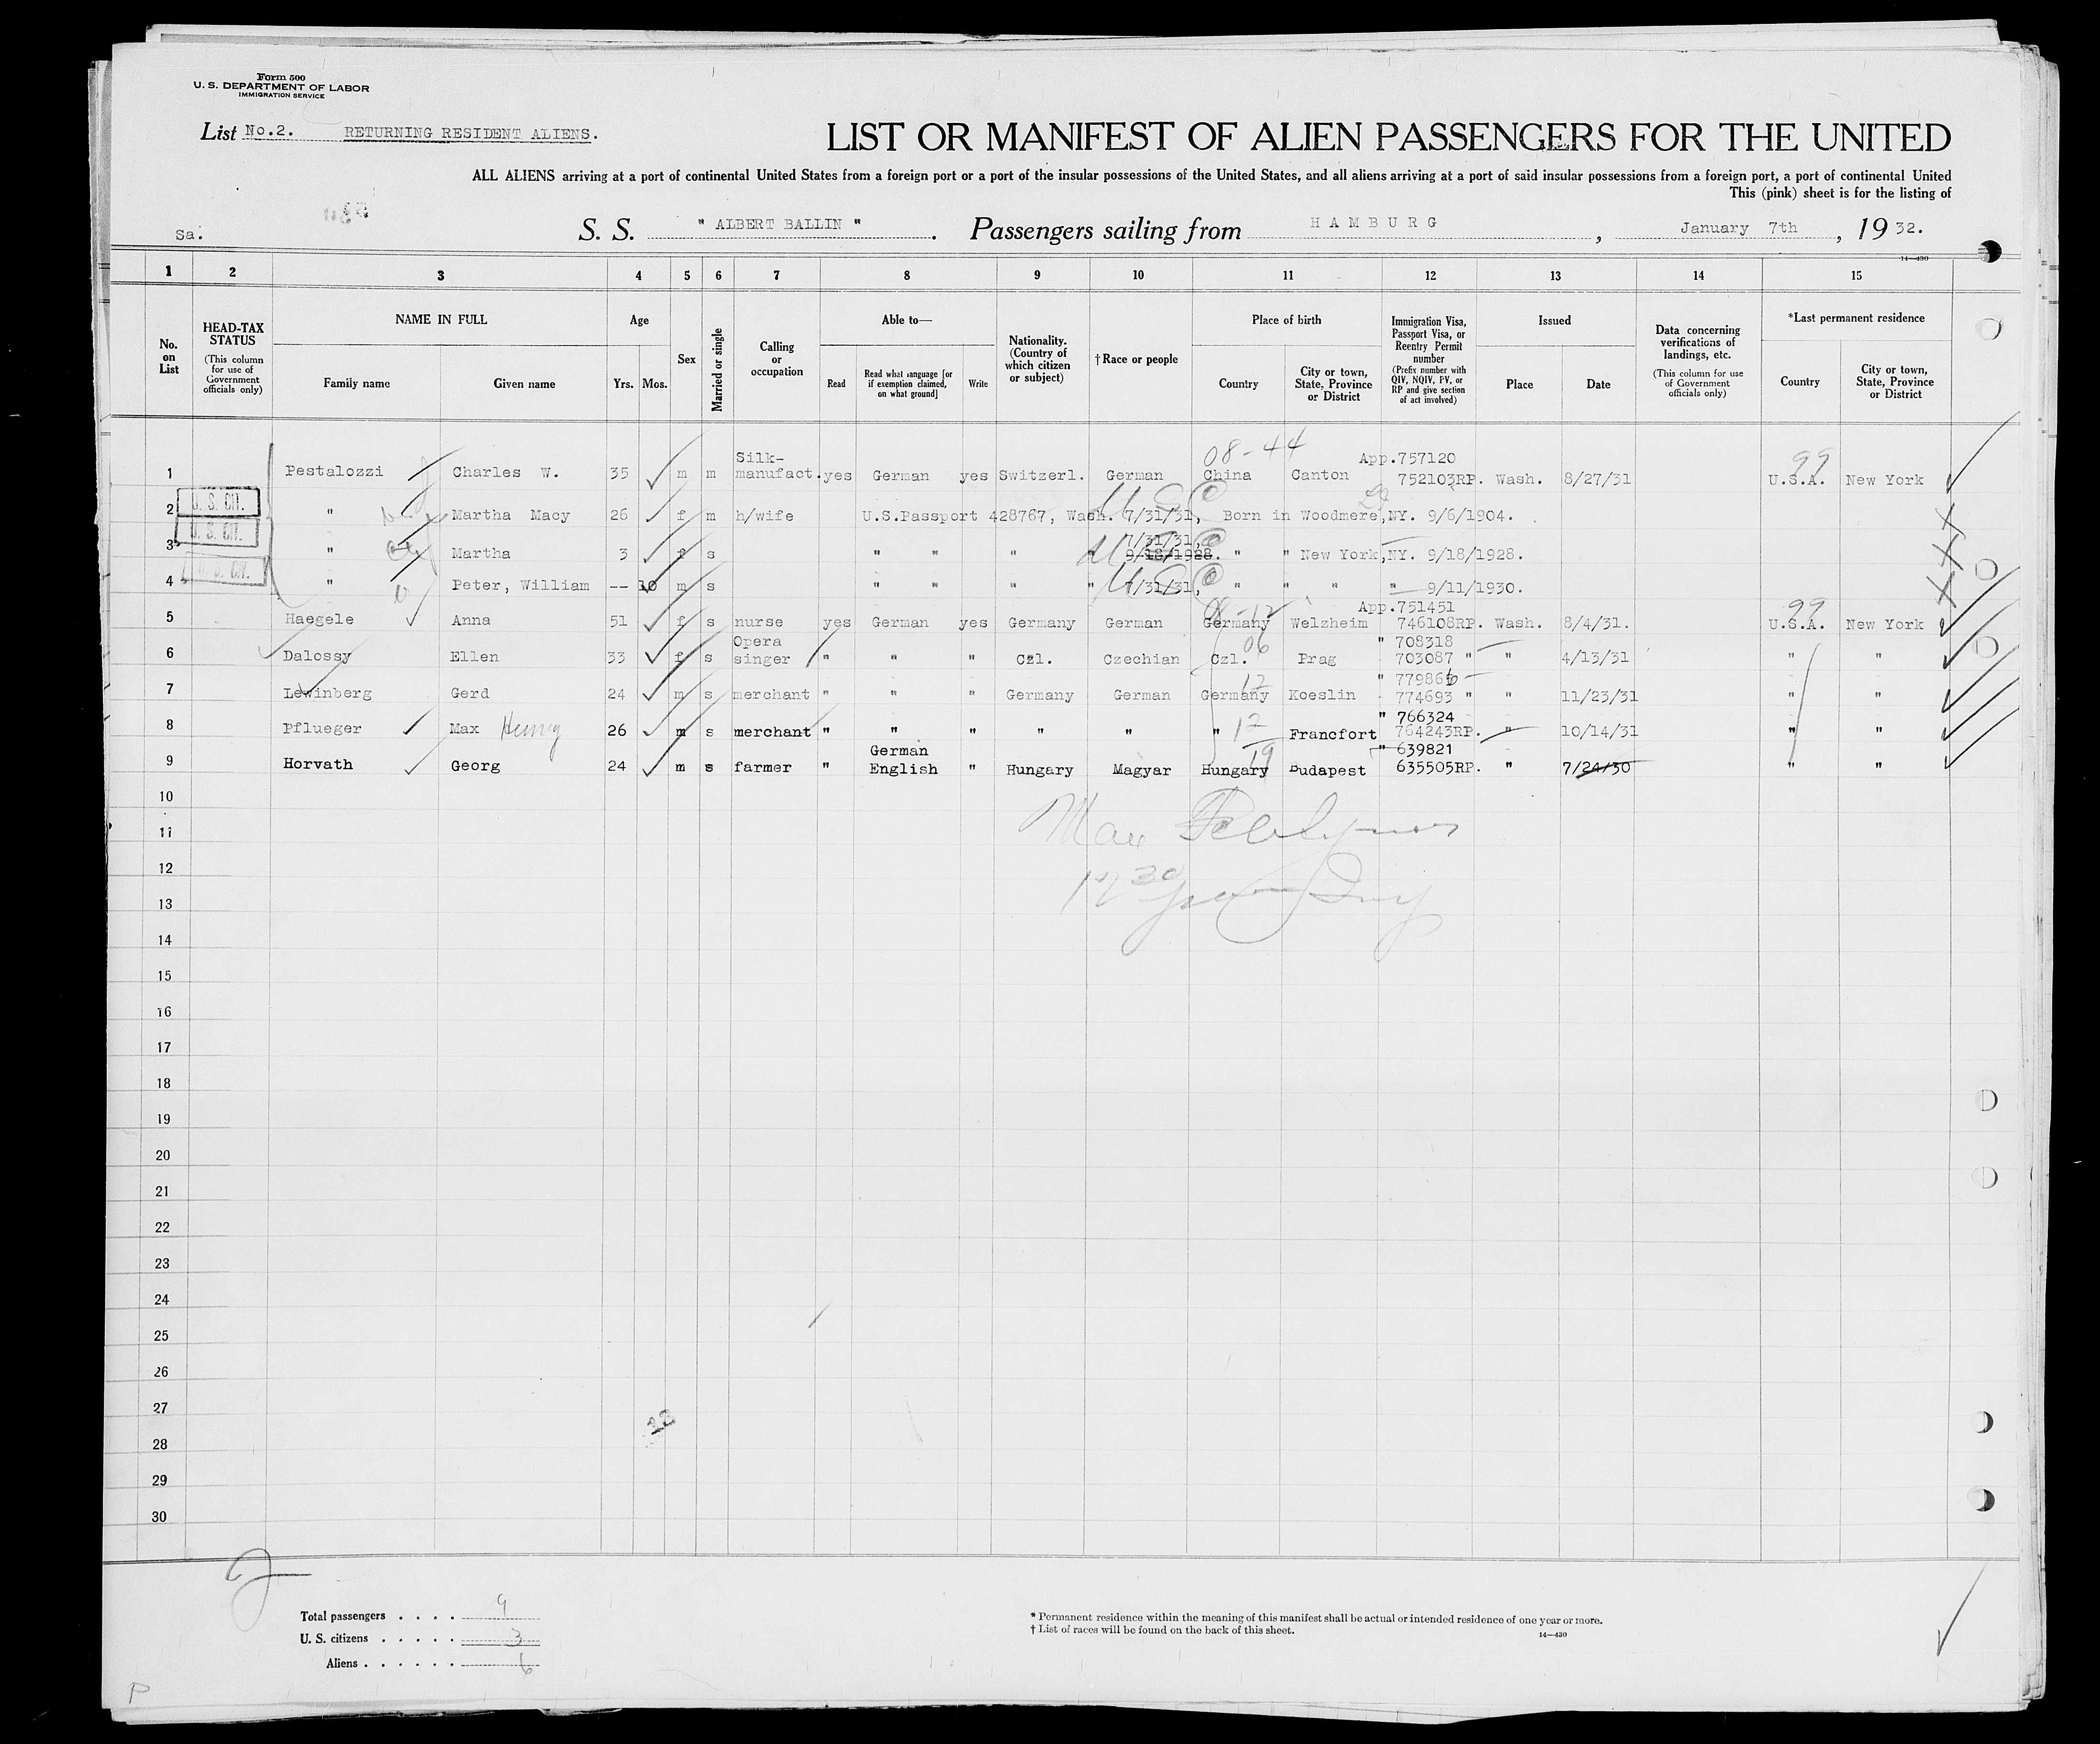 Form 500
U. S. DEPARTMENT OF LABOR
IMMIGRATION SERVICE
List No.2. RETURNING RESIDENT ALIENS.
LIST OR MANIFEST OF ALIEN PASSENGERS FOR THE UNITED
ALL ALIENS arriving at a port of continental United States from a foreign port or a port of the insular possessions of the United States, and all aliens arriving at a port of said insular possessions from a foreign port, a port of continental United
This (pink) sheet is for the listing of
Sa. S. S. " ALBERT BALLIN ". Passengers sailing from HAMBURG, January 7th, 1932.
14—430
1 2 3 4 5 6 7 8 9 10 11 12 13 14 15
No. on List
HEAD-TAX STATUS (This column for use of Government officials only)
NAME IN FULL
Family name Given name
Age
Yrs. Mos.
Sex
Married or single
Calling or occupation
Able to—
Read Read what language [or if exemption claimed, on what ground] Write
Nationality. (Country of which citizen or subject)
†Race or people
Place of birth
Country City or town, State, Province or District
Immigration Visa, Passport Visa, or Reentry Permit number (Prefix number with QIV, NQIV, PV, or RP and give section of act involved)
Issued
Place Date
Data concerning verifications of landings, etc. (This column for use of Government officials only)
*Last permanent residence
Country City or town, State, Province or District
08-44
Silk- App.757120 99
1 Pestalozzi Charles W. 35 m m manufact. yes German yes Switzerl. German China Canton 752103RP. Wash. 8/27/31 U.S.A. New York
U. S. CIT.
2 " Martha Macy 26 f m h/wife U.S.Passport 428767, Wash. 7/31/31, Born in Woodmere,NY. 9/6/1904.
U. S. CIT.
7/31/31,
3 " Martha 3 f s " " " " 9/18/1928. " " New York,NY. 9/18/1928.
U. S. CIT.
4 " Peter, William -- 10 m s " " " " 7/31/31, " " " " 9/11/1930.
08-12 App.751451 99
5 Haegele Anna 51 f s nurse yes German yes Germany German Germany Welzheim 746108RP. Wash. 8/4/31. U.S.A. New York
Opera 06 " 708318
6 Dalossy Ellen 33 f s singer " " " Czl. Czechian Czl. Prag 703087 " " 4/13/31 " "
12 " 779866
7 Lewinberg Gerd 24 m s merchant " " " Germany German Germany Koeslin 774693 " " 11/23/31 " "
" 766324
8 Pflueger Max Henry 26 m s merchant " " " " " " 12 Francfort 764243RP. " 10/14/31 " "
German 19 " 639821
9 Horvath Georg 24 m s farmer " English " Hungary Magyar Hungary Budapest 635505RP. " 7/24/30 " "
10
11
Max
12
13
14
15
16
17
18
19
20
21
22
23
24
25
26
27
28
29
30
Total passengers . . . . 9
U. S. citizens . . . . . 3
Aliens . . . . . . 6
* Permanent residence within the meaning of this manifest shall be actual or intended residence of one year or more.
† List of races will be found on the back of this sheet.
14—430
P